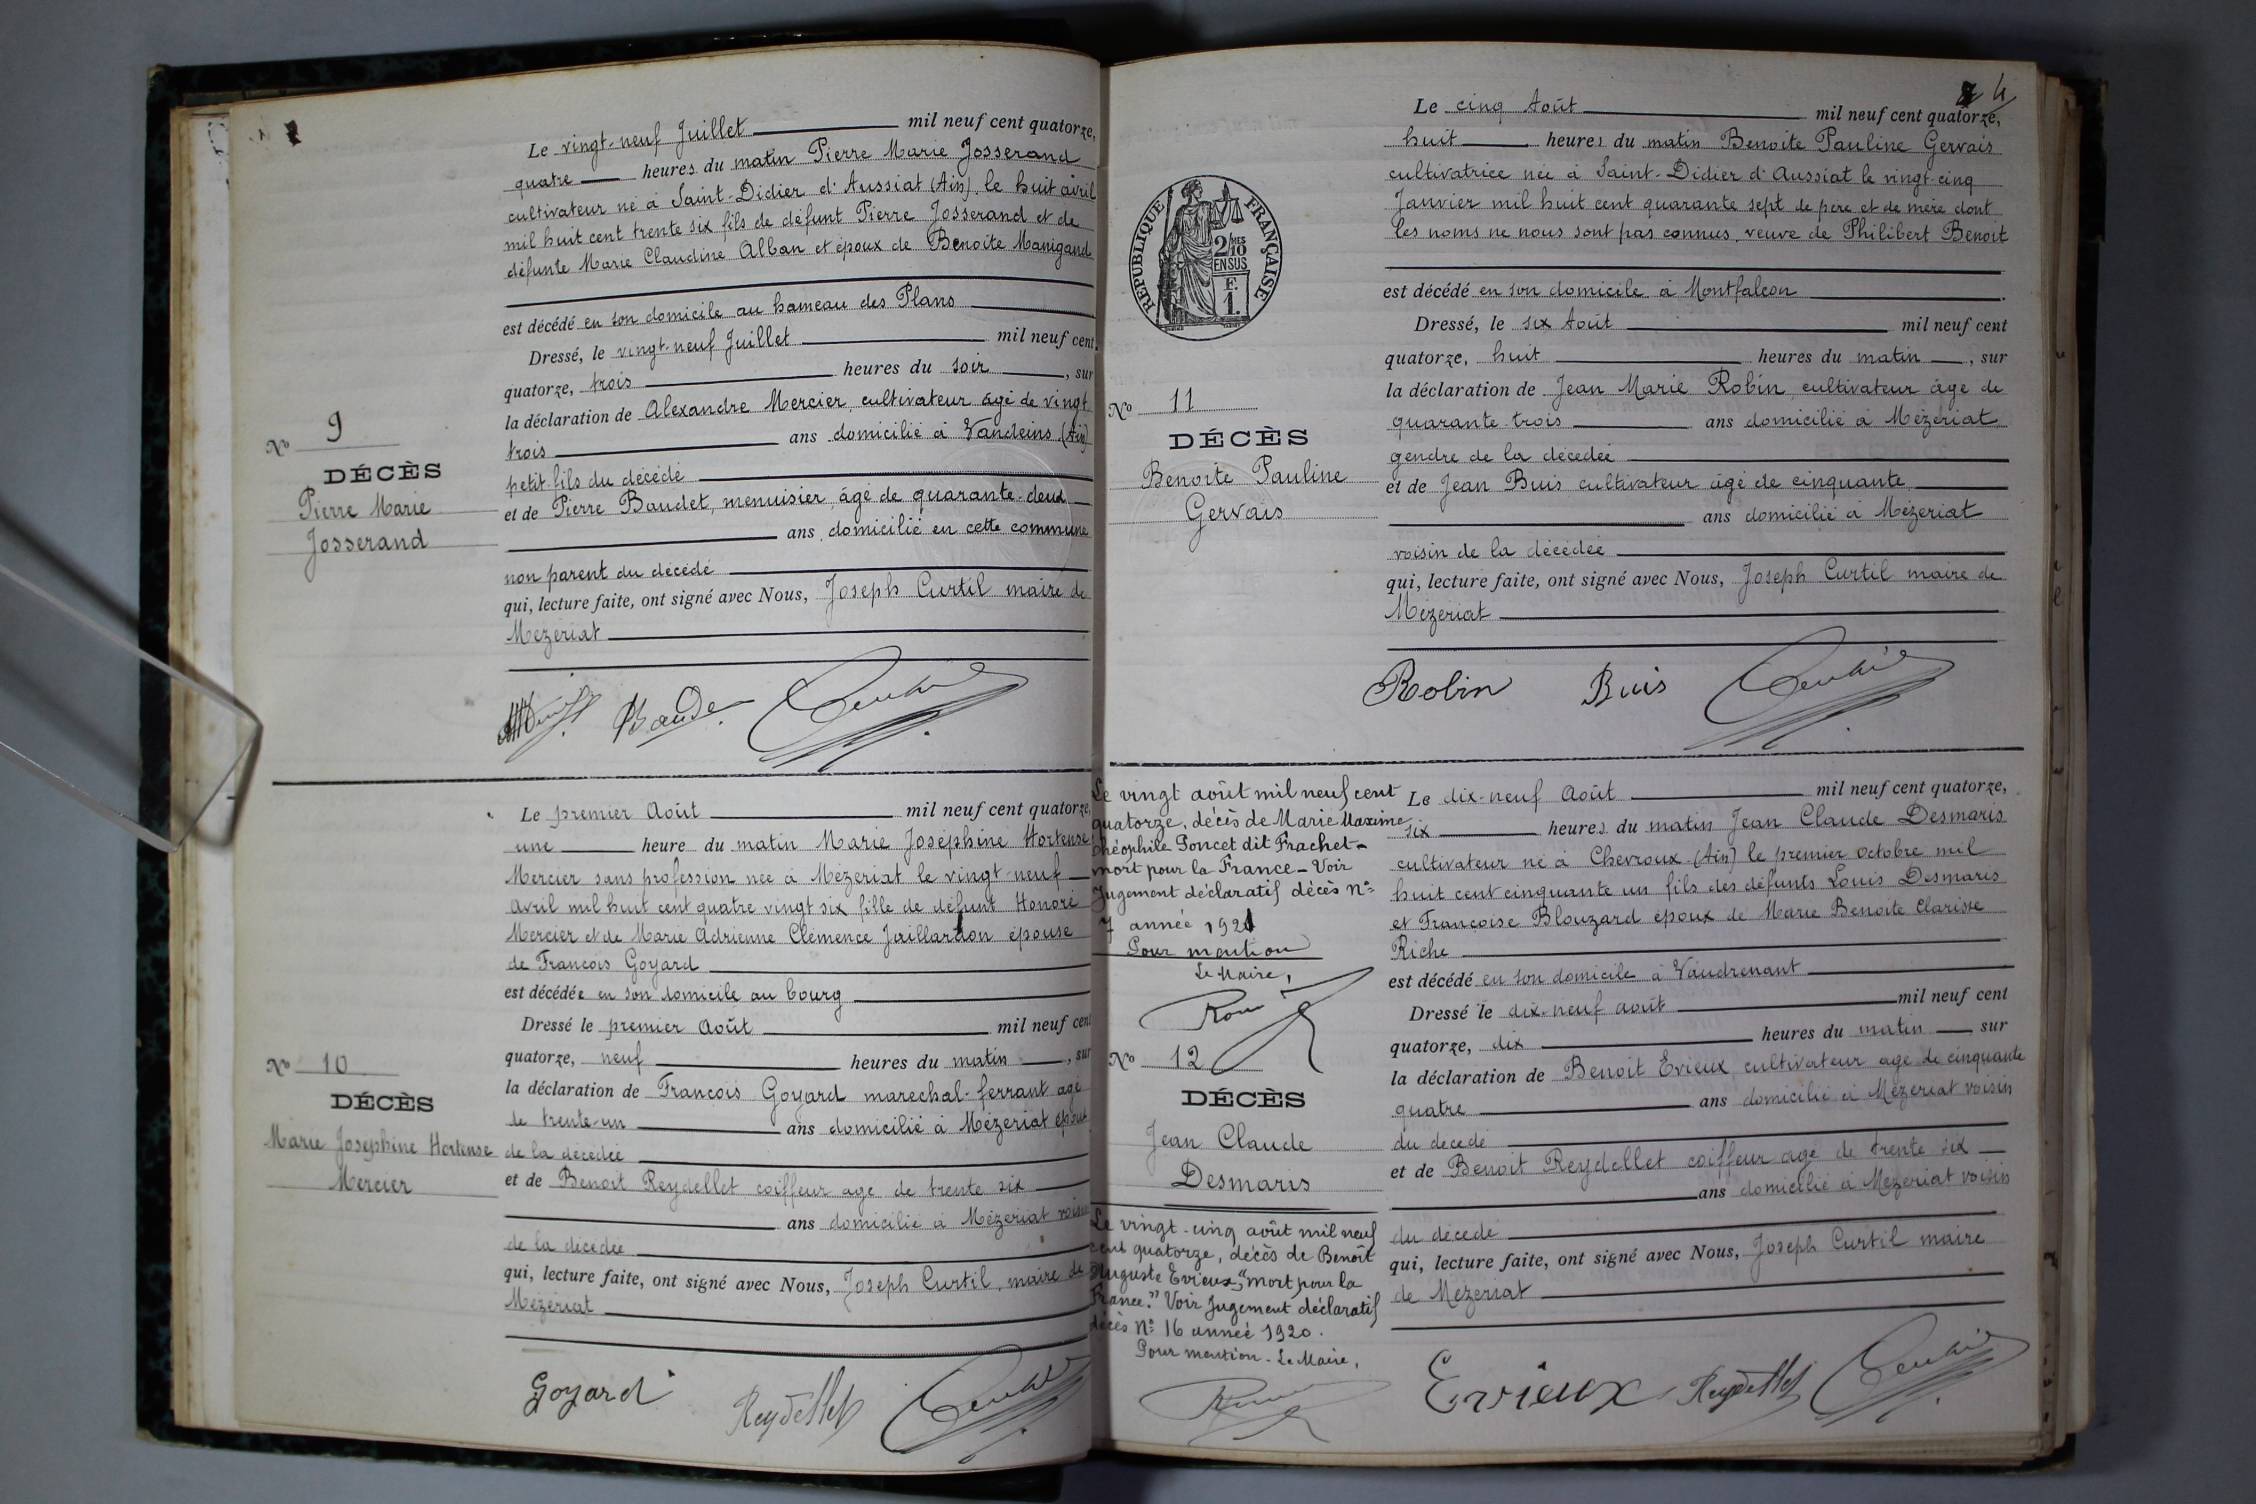 Le vingt-neuf Juillet mil neuf cent quatorze,
quatre heures du matin Pierre Marie Josserand
cultivateur né à Saint-Didier d'Aussiat (Ain) le huit avril
mil huit cent trente six fils de défunt Pierre Josserand et de
défunte Marie Claudine Alban et époux de Benoite Manigand
est décédé en son domicile au hameau des Plans
Dressé, le vingt-neuf Juillet mil neuf cent
quatorze, trois heures du soir, sur
la déclaration de Alexandre Mercier, cultivateur âgé de vingt
trois ans domicilié à Vandeins (Ain)
petit-fils du décédé
et de Pierre Baudet, menuisier, âgé de quarante-deux
ans domicilié en cette commune
non parent du décédé
qui, lecture faite, ont signé avec Nous, Joseph Curtil maire de
Mézériat
No 9
DÉCÈS
Pierre Marie
Josserand
Le premier Août mil neuf cent quatorze,
une heure du matin Marie Joséphine Hortense
Mercier sans profession née à Mézériat le vingt-neuf
avril mil huit cent quatre vingt six fille de défunt Honoré
Mercier et de Marie Adrienne Clémence Juillardon épouse
de François Goyard
est décédée en son domicile au bourg
Dressé le premier Août mil neuf cent
quatorze, neuf heures du matin, sur
la déclaration de François Goyard maréchal-ferrant âgé
de trente-un ans domicilié à Mézériat époux
de la décédée
et de Benoit Reydellet coiffeur âgé de trente six
ans domicilié à Mézériat voisin
de la décédée
qui, lecture faite, ont signé avec Nous, Joseph Curtil, maire de
Mézériat
No 10
DÉCÈS
Marie Joséphine Hortense
Mercier
Goyard Reydellet Curtil
4
RÉPUBLIQUE FRANÇAISE
2/10
MES
EN SUS
F.
1.
Le cinq Août mil neuf cent quatorze,
huit heures du matin Benoite Pauline Gervais
cultivatrice née à Saint-Didier d'Aussiat le vingt-cinq
Janvier mil huit cent quarante sept de père et de mère dont
les noms ne nous sont pas connus, veuve de Philibert Benoit
est décédé en son domicile à Montfalcon
Dressé, le six Août mil neuf cent
quatorze, huit heures du matin, sur
la déclaration de Jean Marie Robin, cultivateur âgé de
quarante-trois ans domicilié à Mézériat
gendre de la décédée
et de Jean Buis cultivateur âgé de cinquante
ans domicilié à Mézériat
voisin de la décédée
qui, lecture faite, ont signé avec Nous, Joseph Curtil maire de
Mézériat
No 11
DÉCÈS
Benoite Pauline
Gervais
Robin Buis Curtil
Le vingt août mil neuf cent
quatorze, décès de Marie Maxime
Théophile Poncet dit Frachet -
mort pour la France - Voir
Jugement déclaratif décès No
7 année 1921
Pour mention
Le Maire,
No 12
DÉCÈS
Jean Claude
Desmaris
Le vingt-cinq août mil neuf
cent quatorze, décès de Benoît
Auguste Evieux, "mort pour la
France." Voir Jugement déclaratif
décès No 16 année 1920.
Pour mention - Le Maire,
Le dix-neuf Août mil neuf cent quatorze,
six heures du matin Jean Claude Desmaris
cultivateur né à Chevroux (Ain) le premier octobre mil
huit cent cinquante un fils des défunts Louis Desmaris
et Françoise Blouzard époux de Marie Benoite Clarisse
Riche
est décédé en son domicile à Vaudrenant
Dressé le dix-neuf août mil neuf cent
quatorze, dix heures du matin sur
la déclaration de Benoit Evieux cultivateur âgé de cinquante
quatre ans domicilié à Mézériat voisin
du décédé
et de Benoit Reydellet coiffeur âgé de trente six
ans domicilié à Mézériat voisin
du décédé
qui, lecture faite, ont signé avec Nous, Joseph Curtil maire
de Mézériat
Evieux Reydellet Curtil